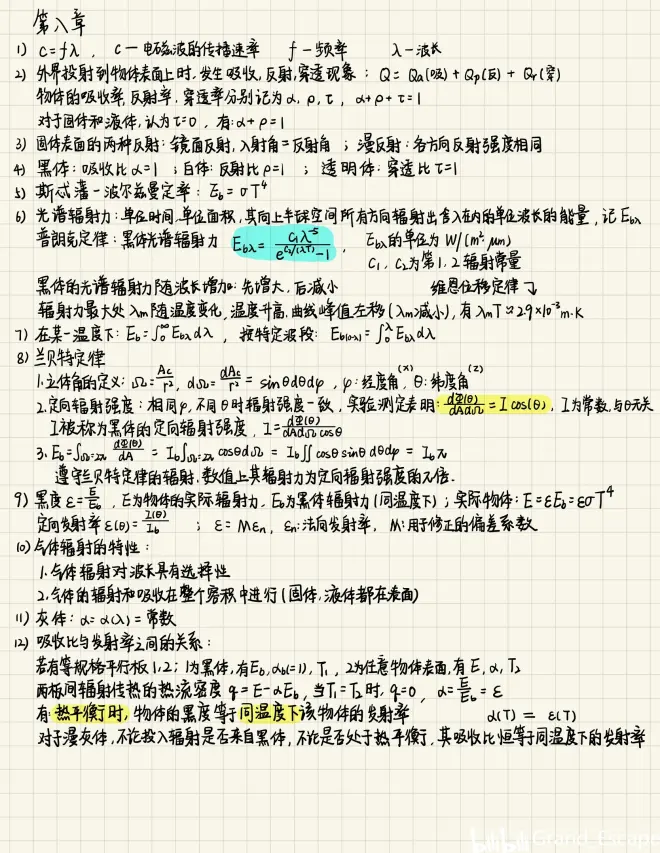 第八章
1) C=fλ , C—电磁波的传播速率 f—频率 λ—波长
2) 外界投射到物体表面上时,发生吸收,反射,穿透现象: Q=Qα(吸)+Qρ(反)+Qτ(穿)
物体的吸收率,反射率,穿透率分别记为α,ρ,τ, α+ρ+τ=1
对于固体和液体,认为τ=0, 有:α+ρ=1
3) 固体表面的两种反射:镜面反射,入射角=反射角 ; 漫反射:各方向反射强度相同
4) 黑体:吸收比α=1 ;白体:反射比ρ=1 ; 透明体:穿透比τ=1
5) 斯忒藩-波尔兹曼定率: E_b=σT⁴
6) 光谱辐射力:单位时间,单位面积,其向上半球空间所有方向辐射出含λ在内的单位波长的能量,记E_bλ
普朗克定律:黑体光谱辐射力 E_bλ = C₁λ⁻⁵/(e^(C₂/(λT))-1), E_bλ的单位为W/(m²·μm)
C₁, C₂为第1,2辐射常量
黑体的光谱辐射力随波长增加:先增大,后减小 维恩位移定律↴
辐射力最大处λm随温度变化,温度升高,曲线峰值左移(λm减小),有λmT≈2.9×10⁻³m·K
7) 在某一温度下: E_b=∫₀^∞E_bλdλ, 按特定波段: E_b(0-λ)=∫₀^λE_bλdλ
8) 兰贝特定律
1.立体角的定义: Ω=Ac/r², dΩ=dAc/r²=sinθdθdφ, φ:经度角(x), θ:纬度角(z)
2.定向辐射强度:相同φ,不同θ时辐射强度一致,实验测定表明: dΦ(θ)/dAdΩ=Icos(θ), I为常数,与θ无关
I被称为黑体的定向辐射强度, I=dΦ(θ)/dAdΩcosθ
3. E_b=∫_Ω=2π dΦ(θ)/dA=I_b∫_Ω=2π cosθdΩ=I_b∬cosθsinθdθdφ=I_bπ
遵守兰贝特定律的辐射,数值上其辐射力为定向辐射强度的π倍.
9) 黑度ε=E/E_b, E为物体的实际辐射力,E_b为黑体辐射力(同温度下);实际物体:E=εE_b=εσT⁴
定向发射率ε(θ)=I(θ)/I_b ; ε=Mε_n, ε_n:法向发射率, M:用于修正的偏差系数
10) 气体辐射的特性:
1.气体辐射对波长具有选择性
2.气体的辐射和吸收在整个容积中进行(固体,液体都在表面)
11) 灰体: α=α(λ)=常数
12) 吸收比与发射率之间的关系:
若有等规格平行板1,2; 1为黑体,有E_b,α_b(=1),T₁, 2为任意物体表面,有E,α,T₂
两板间辐射传热的热流密度q=E-αE_b,当T₁=T₂时,q=0, α=E/E_b=ε
有:热平衡时,物体的黑度等于同温度下该物体的发射率 α(T)=ε(T)
对于漫灰体,不论投入辐射是否来自黑体,不论是否处于热平衡,其吸收比恒等于同温度下的发射率
bilibili Grand_Escape